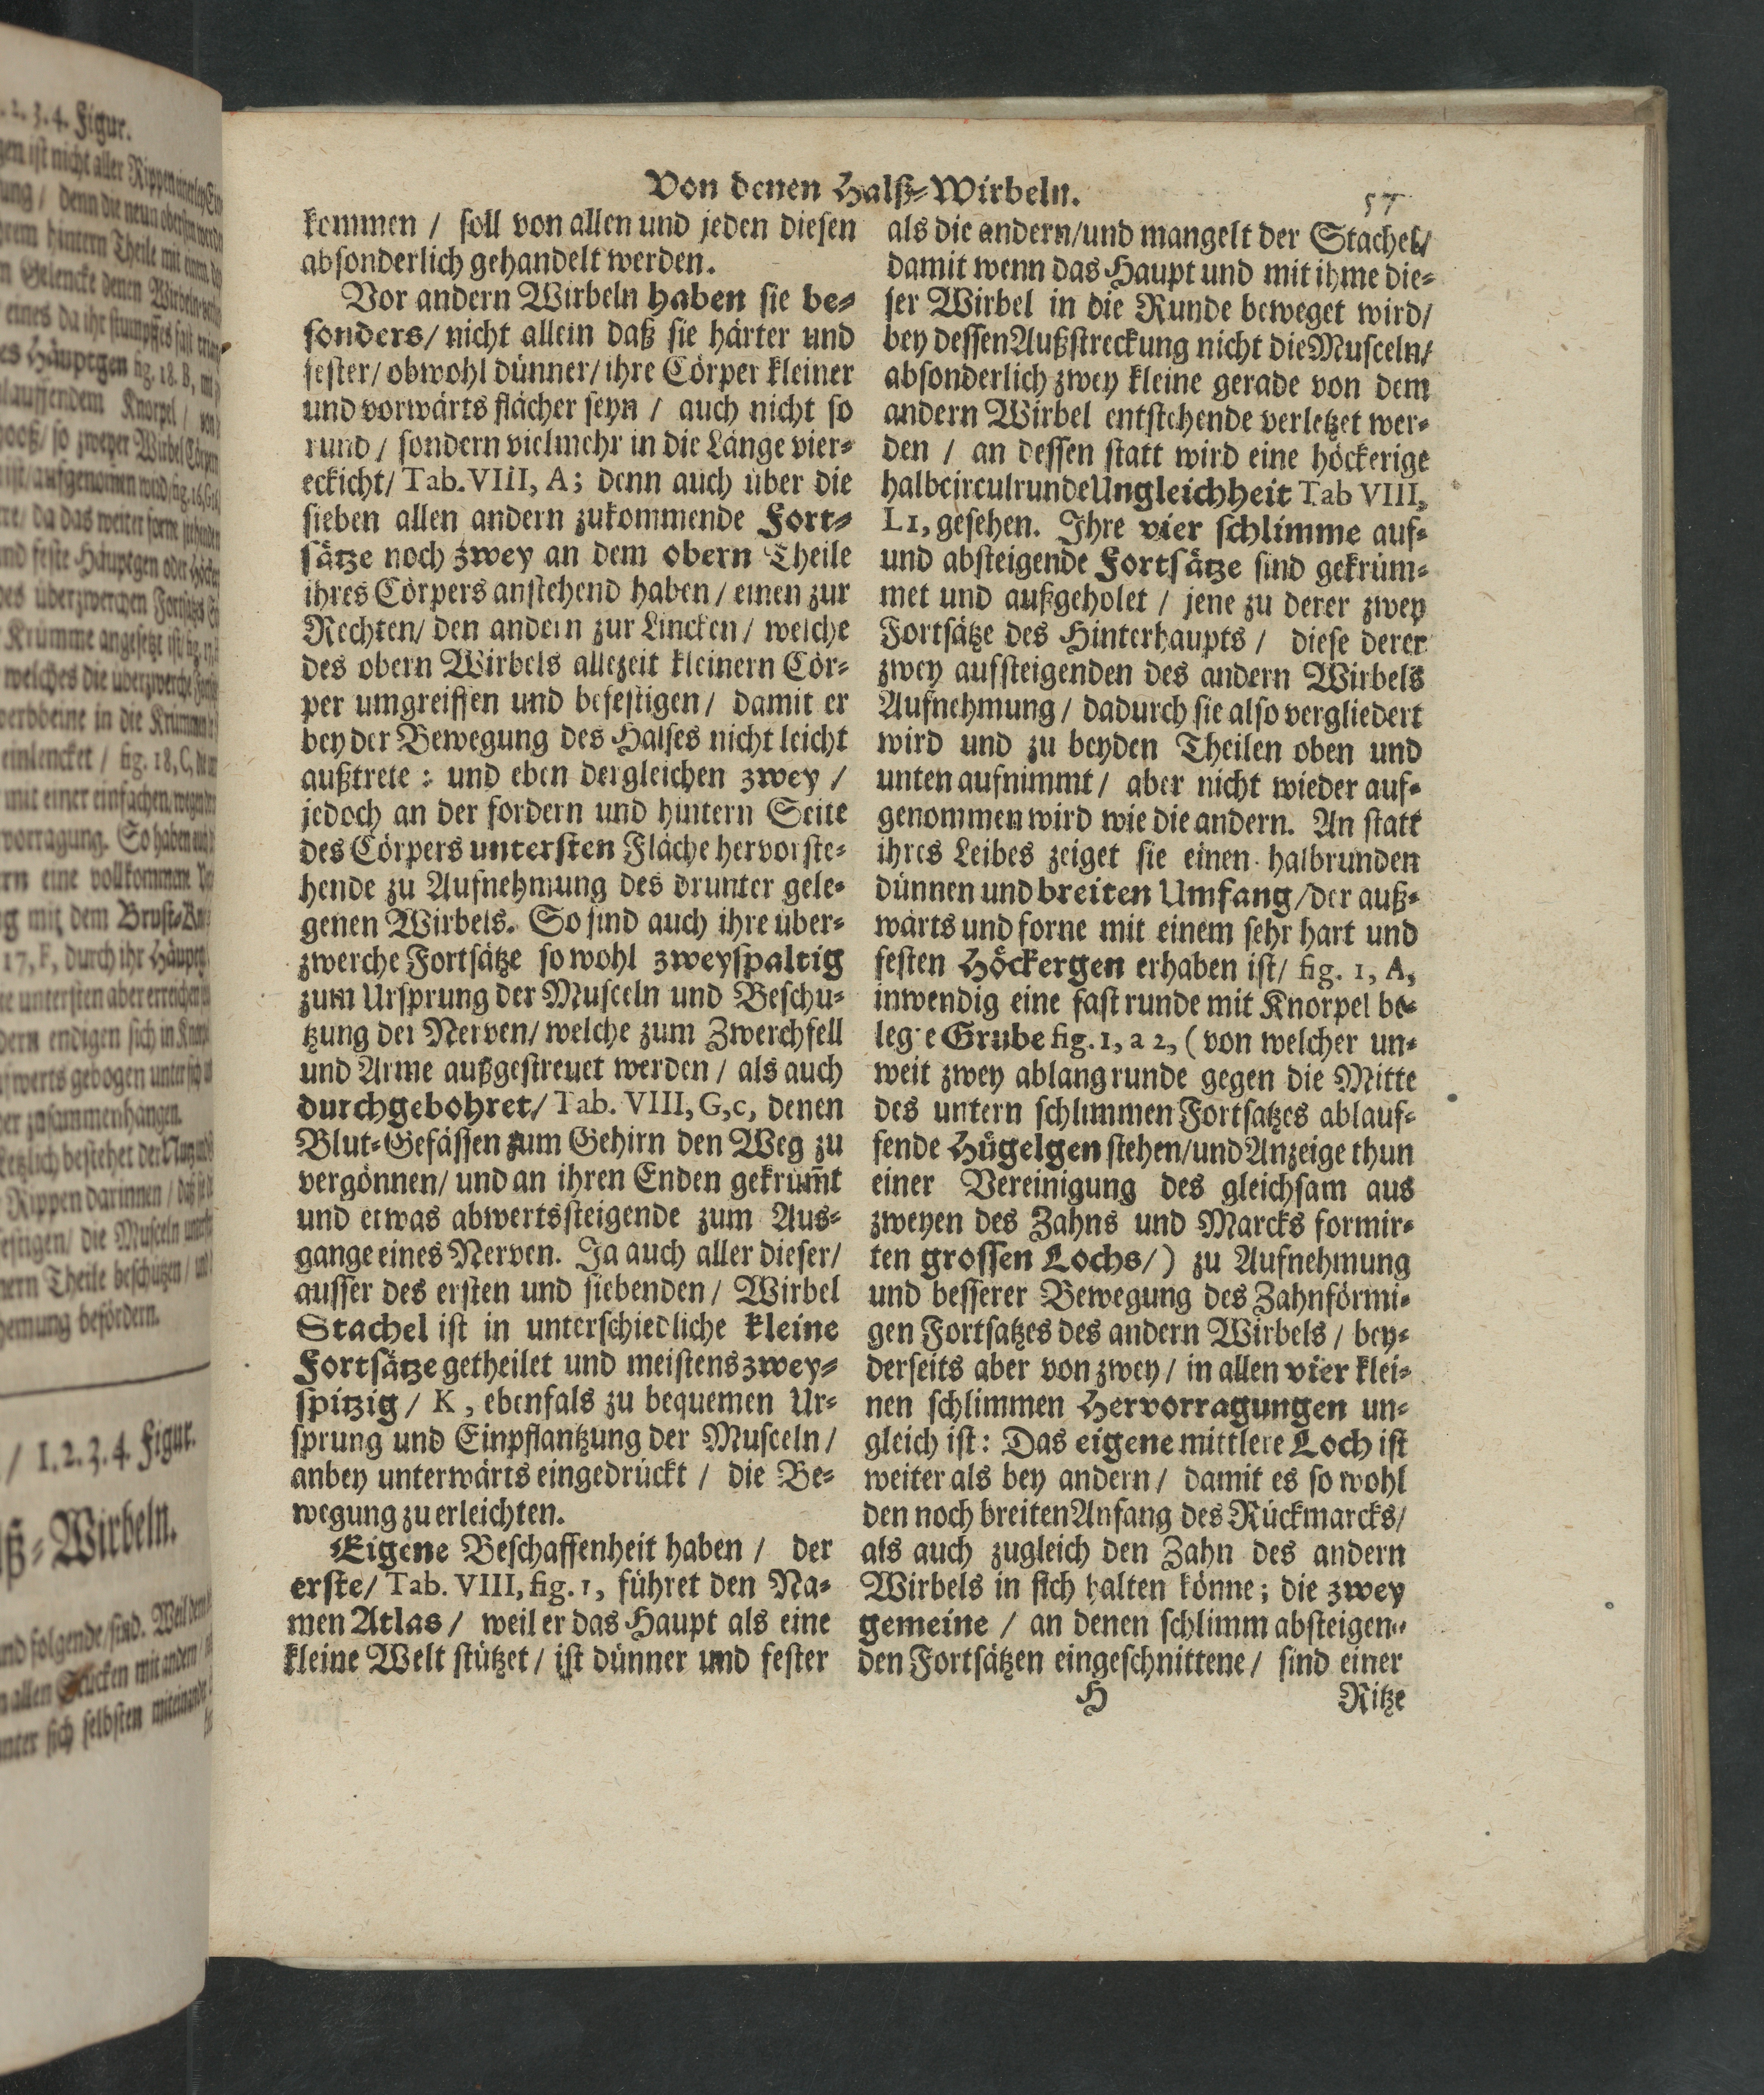 Von denen Halß-Wirbeln.
57
kommen / soll von allen und jeden diesen
absonderlich gehandelt werden.
Vor andern Wirbeln haben sie be-
sonders/ nicht allein daß sie härter und
fester/ obwohl dünner/ ihre Cörper kleiner
und vorwärts flächer seyn / auch nicht so
rund / sondern vielmehr in die Länge vier-
eckicht/ Tab. VIII, A; denn auch über die
sieben allen andern zukommende Fort-
sätze noch zwey an dem obern Theile
ihres Cörpers anstehend haben / einen zur
Rechten/ den andern zur Lincken / welche
des obern Wirbels allezeit kleinern Cör-
per umgreiffen und befestigen / damit er
bey der Bewegung des Halses nicht leicht
außtrete : und eben dergleichen zwey /
jedoch an der fordern und hintern Seite
des Cörpers untersten Fläche hervorste-
hende zu Aufnehmung des drunter gele-
genen Wirbels. So sind auch ihre über-
zwerche Fortsätze so wohl zweyspaltig
zum Ursprung der Musceln und Beschü-
tzung der Nerven/ welche zum Zwerchfell
und Arme außgestreuet werden / als auch
durchgebohret/ Tab. VIII, G,c, denen
Blut-Gefässen zum Gehirn den Weg zu
vergönnen/ und an ihren Enden gekrüm̃t
und etwas abwertssteigende zum Aus-
gange eines Nerven. Ja auch aller dieser/
ausser des ersten und siebenden / Wirbel
Stachel ist in unterschiedliche kleine
Fortsätze getheilet und meistens zwey-
spitzig / K, ebenfals zu bequemen Ur-
sprung und Einpflantzung der Musceln /
anbey unterwärts eingedrückt / die Be-
wegung zu erleichten.
Eigene Beschaffenheit haben / der
erste/ Tab. VIII, fig. 1, führet den Na-
men Atlas / weil er das Haupt als eine
kleine Welt stützet / ist dünner und fester
als die andern/und mangelt der Stachel/
damit wenn das Haupt und mit ihme die-
ser Wirbel in die Runde beweget wird/
bey dessen Außstreckung nicht die Musceln/
absonderlich zwey kleine gerade von dem
andern Wirbel entstehende verletzet wer-
den / an dessen statt wird eine höckerige
halbcirculrunde Ungleichheit Tab VIII,
L1, gesehen. Ihre vier schlimme auf-
und absteigende Fortsätze sind gekrüm-
met und außgeholet / jene zu derer zwey
Fortsätze des Hinterhaupts / diese derer
zwey aufsteigenden des andern Wirbels
Aufnehmung / dadurch sie also vergliedert
wird und zu beyden Theilen oben und
unten aufnimmt / aber nicht wieder auf-
genommen wird wie die andern. An statt
ihres Leibes zeiget sie einen halbrunden
dünnen und breiten Umfang /der auß-
wärts und forne mit einem sehr hart und
festen Höckergen erhaben ist/ fig. 1, A,
inwendig eine fast runde mit Knorpel be-
legte Grube fig. 1, a 2, ( von welcher un-
weit zwey ablang runde gegen die Mitte
des untern schlimmen Fortsatzes ablauf-
fende Hügelgen stehen/und Anzeige thun
einer Vereinigung des gleichsam aus
zweyen des Zahns und Marcks formir-
ten grossen Lochs/) zu Aufnehmung
und besserer Bewegung des Zahnförmi-
gen Fortsatzes des andern Wirbels / bey-
derseits aber von zwey / in allen vier klei-
nen schlimmen Hervorragungen un-
gleich ist: Das eigene mittlere Loch ist
weiter als bey andern / damit es so wohl
den noch breiten Anfang des Rückmarcks/
als auch zugleich den Zahn des andern
Wirbels in sich halten könne; die zwey
gemeine / an denen schlimm absteigen-
den Fortsätzen eingeschnittene / sind einer
H
Ritze